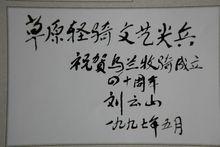 草原轻骑文艺尖兵
祝贺乌兰牧骑成立
四十周年
刘云山
一九九七年五月